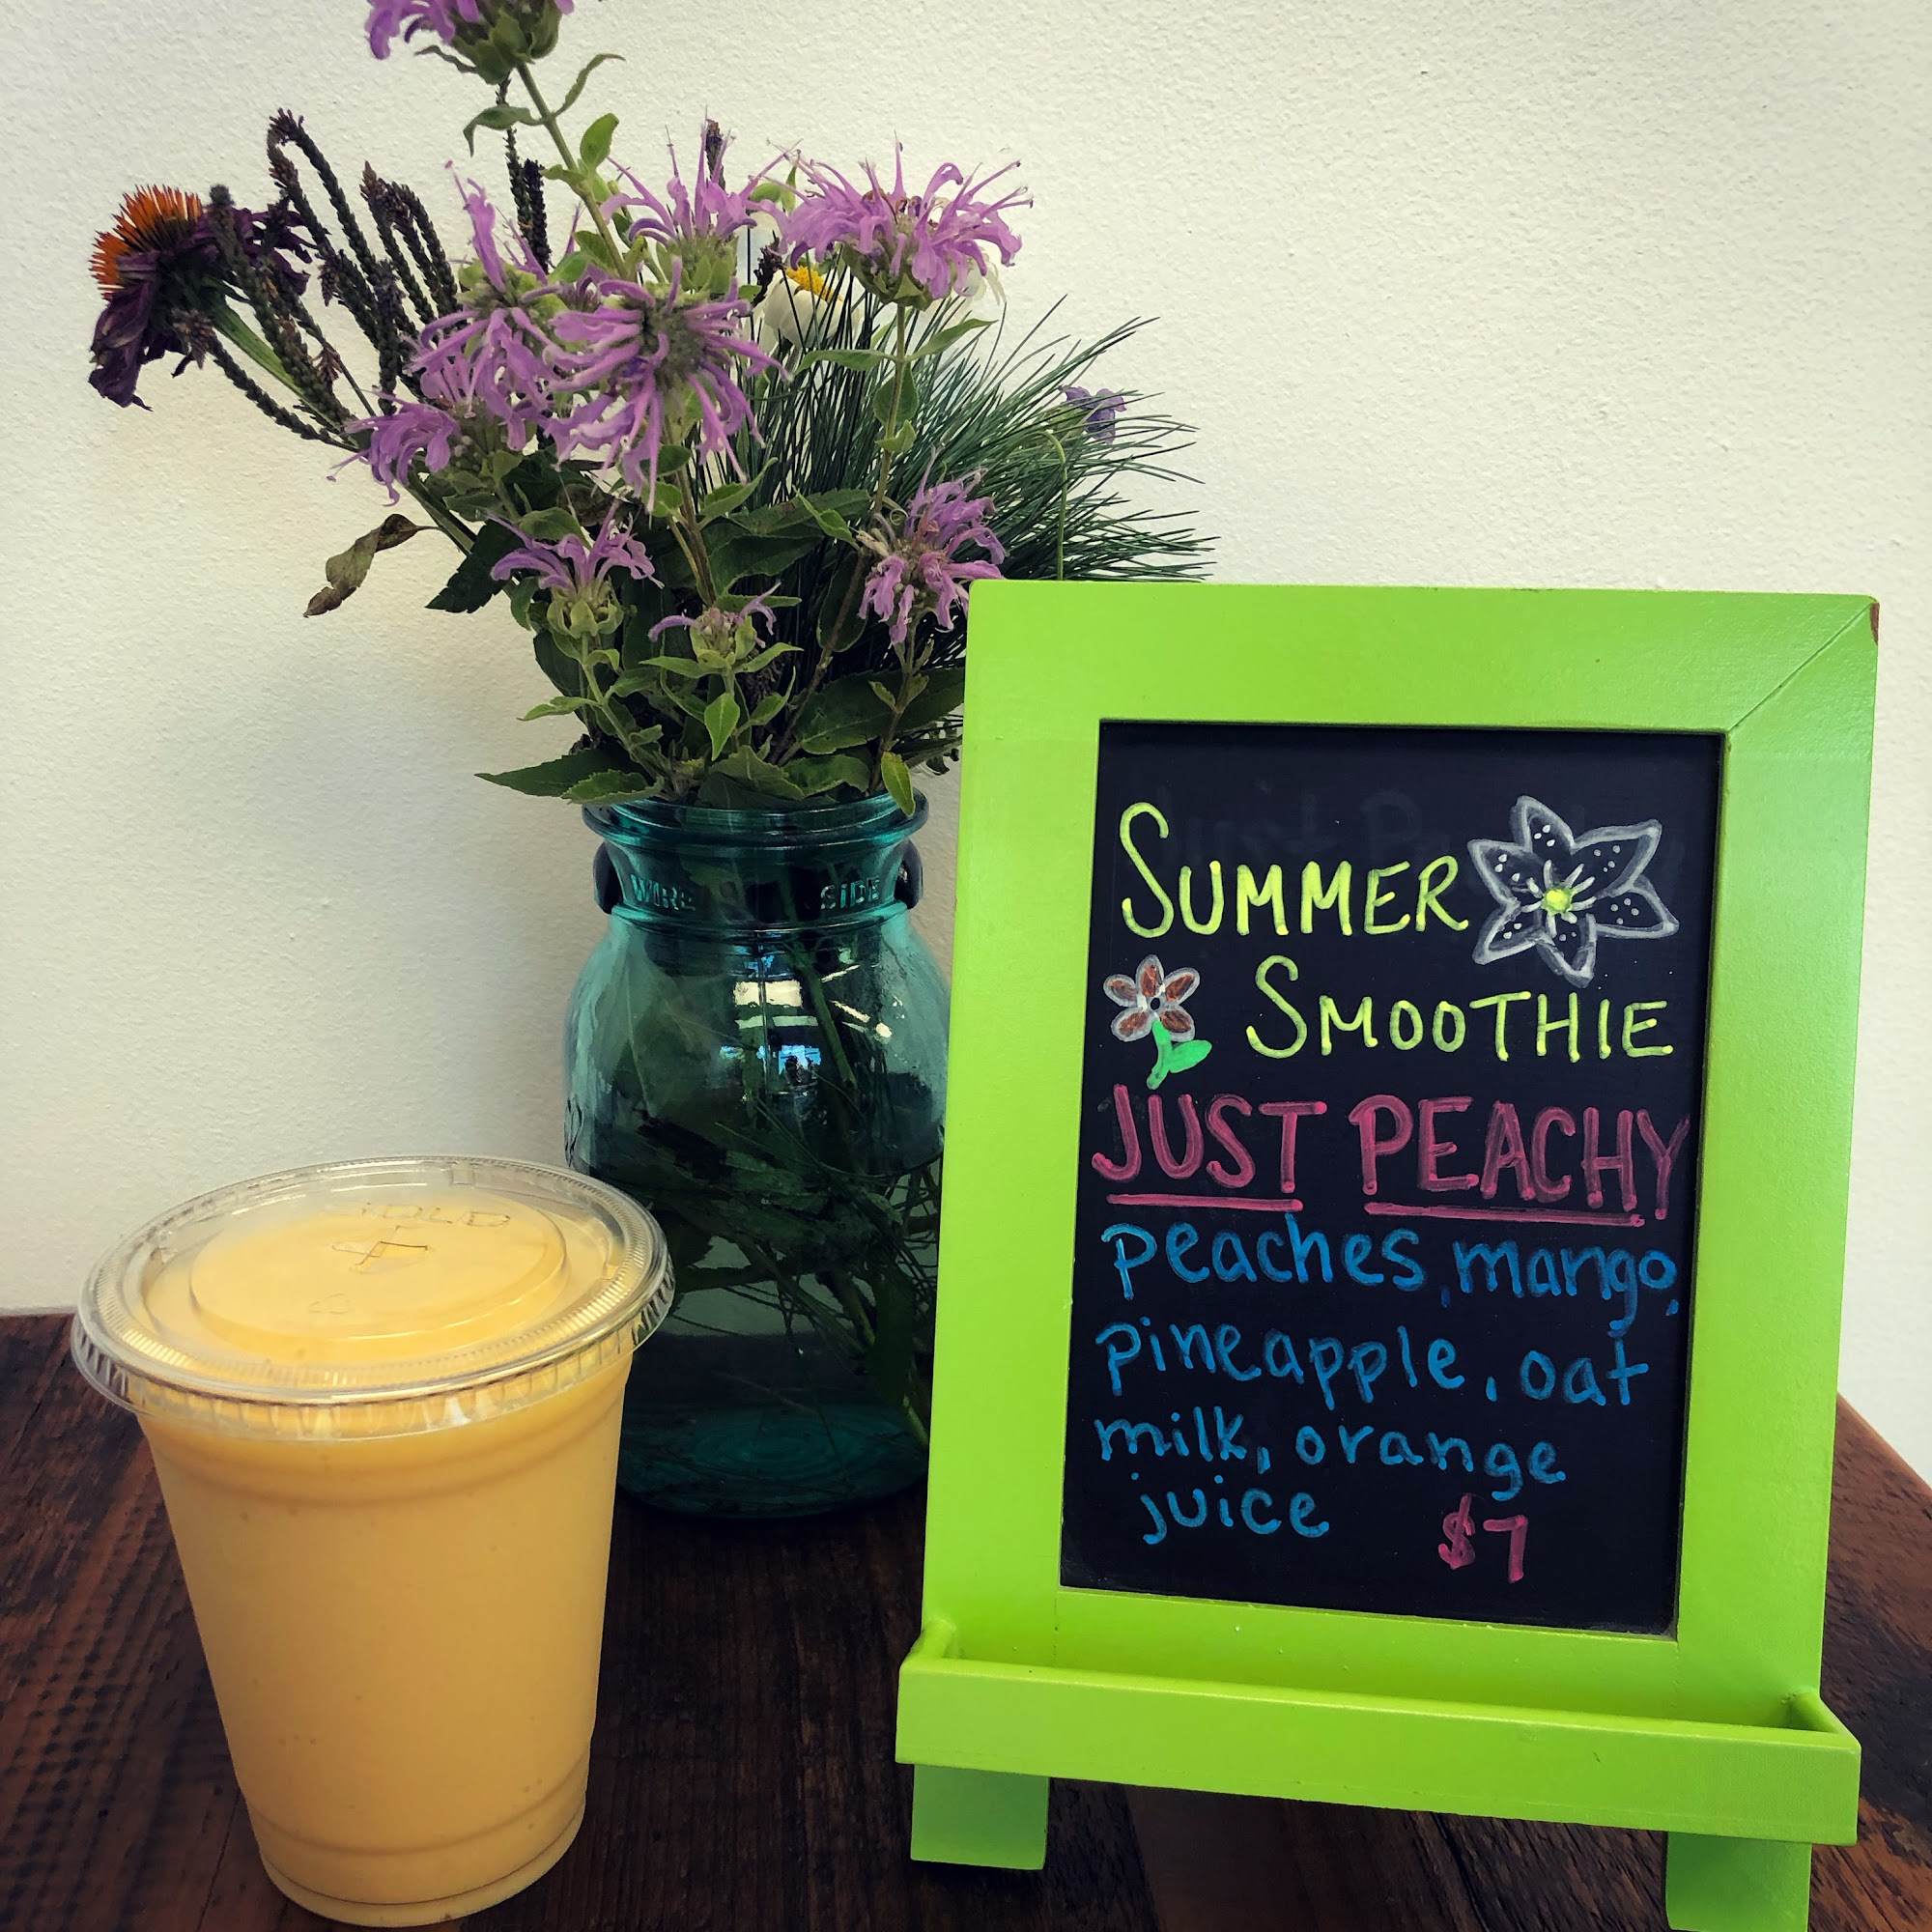 SUMMER
SMOOTHIE
JUST PEACHY
peaches, mango,
pineapple, oat
milk, orange
juice $7
WIRE SIDE